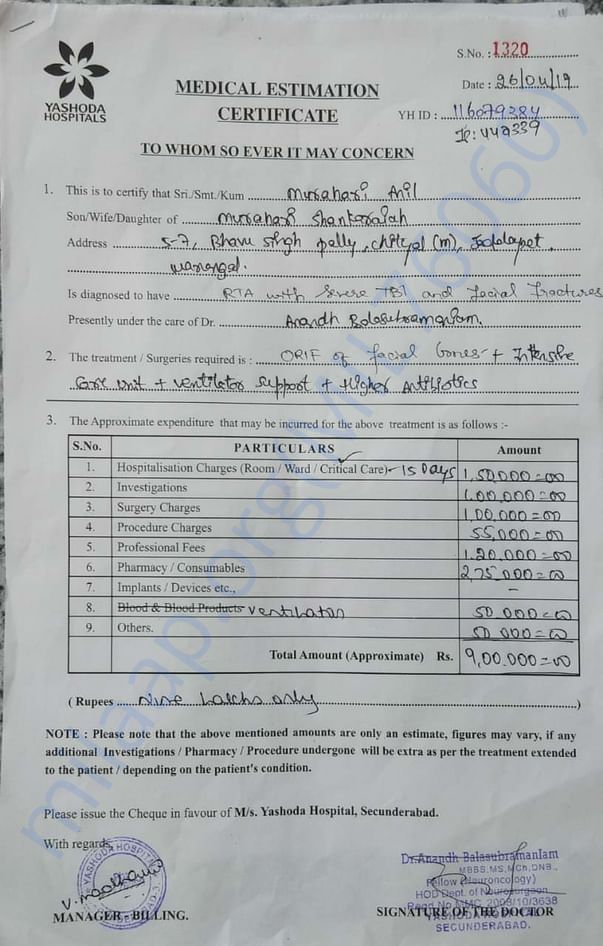 S.No. : 1320
Date : 26/04/19
YASHODA
HOSPITALS
MEDICAL ESTIMATION
CERTIFICATE
YH ID : 116079384
IP: 442339
TO WHOM SO EVER IT MAY CONCERN
1. This is to certify that Sri./Smt./Kum Murahari Anil
Son/Wife/Daughter of Murahari Shankaraiah
Address 5-7, Bhavu Singh pally, chityal (m),
Warangal.
Is diagnosed to have RTA with Severe TBI and facial fractures
Presently under the care of Dr. Anandh Balasubramaniam.
2. The treatment / Surgeries required is : ORIF of facial bones + Intensive
Care unit + ventilator support + Higher Antibiotics
3. The Approximate expenditure that may be incurred for the above treatment is as follows :-
S.No. PARTICULARS Amount
1. Hospitalisation Charges (Room / Ward / Critical Care) - 15 Days 1,50,000=00
2. Investigations 1,00,000=00
3. Surgery Charges 1,00,000=00
4. Procedure Charges 55,000=00
5. Professional Fees 1,20,000=00
6. Pharmacy / Consumables 2,75,000=00
7. Implants / Devices etc., -
8. Blood & Blood Products ventilator 50,000=00
9. Others. 50,000=00
Total Amount (Approximate) Rs. 9,00,000=00
( Rupees Nine Lakhs only )
NOTE : Please note that the above mentioned amounts are only an estimate, figures may vary, if any
additional Investigations / Pharmacy / Procedure undergone will be extra as per the treatment extended
to the patient / depending on the patient's condition.
Please issue the Cheque in favour of M/s. Yashoda Hospital, Secunderabad.
With regards,
YASHODA HOSPITAL
MANAGER - BILLING.
Dr.Anandh Balasubramaniam
MBBS,MS,MCh,DNB.,
Fellow (Neuroncology)
HOD Dept. of Neurosurgeon
Regd No MMC 2008/10/3638
SIGNATURE OF THE DOCTOR
SECUNDERABAD.